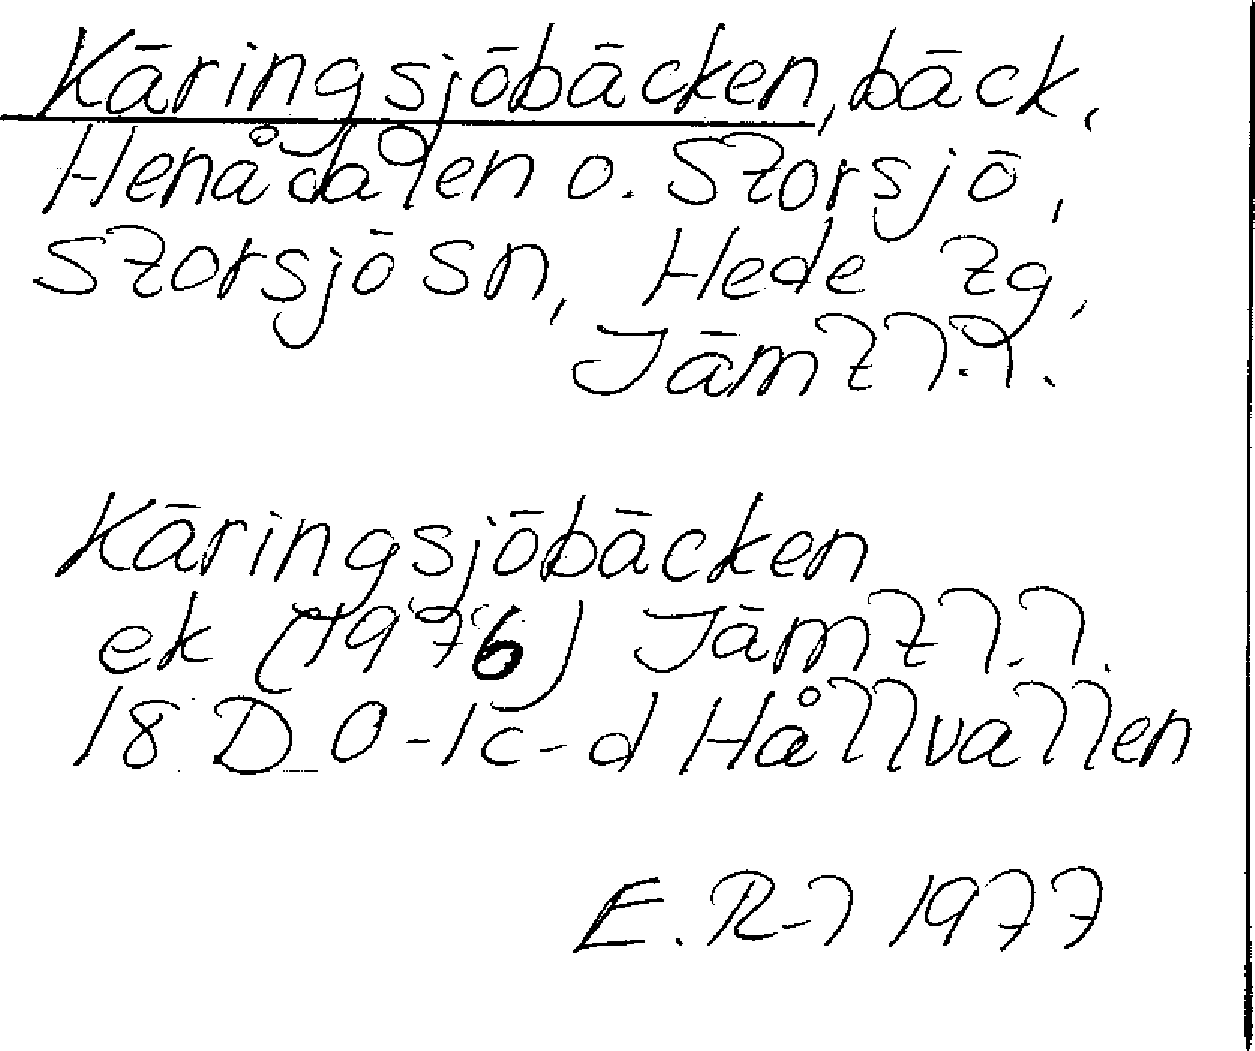 Käringsjöbäcken, bäck,
Henådalen o. Storsjö,
Storsjö sn, Hede tg,
Jämtl.l.
Käringsjöbäcken
ek (1976) Jämtl.l.
18 D 0-1c-d Hållvallen
E.R-l 1977